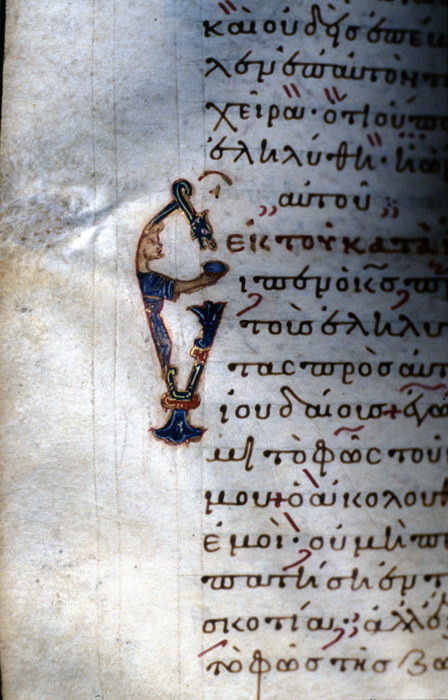 καὶ οὐδεὶς ἐπέ
λεν ἐπ αὐτὸν τ
χεῖρα· ὅτι οὔπω
ἐληλύθει· ἡ ὥρ
αὐτοῦ
ἐκ τοῦ κατὰ
ἶπεν ὁ ἰς
τοῖς ἐληλυ
τας πρὸς αὐτ
ἰουδαίους + ἐγώ
μὴ τὸ φῶς τοῦ
μου + ὁ ἀκολουθ
ἐμοὶ· οὐ μὴ π
πατήσῃ ἐν τ
σκοτίᾳ· ἀλλ
τὸ φῶς τῆς ζω